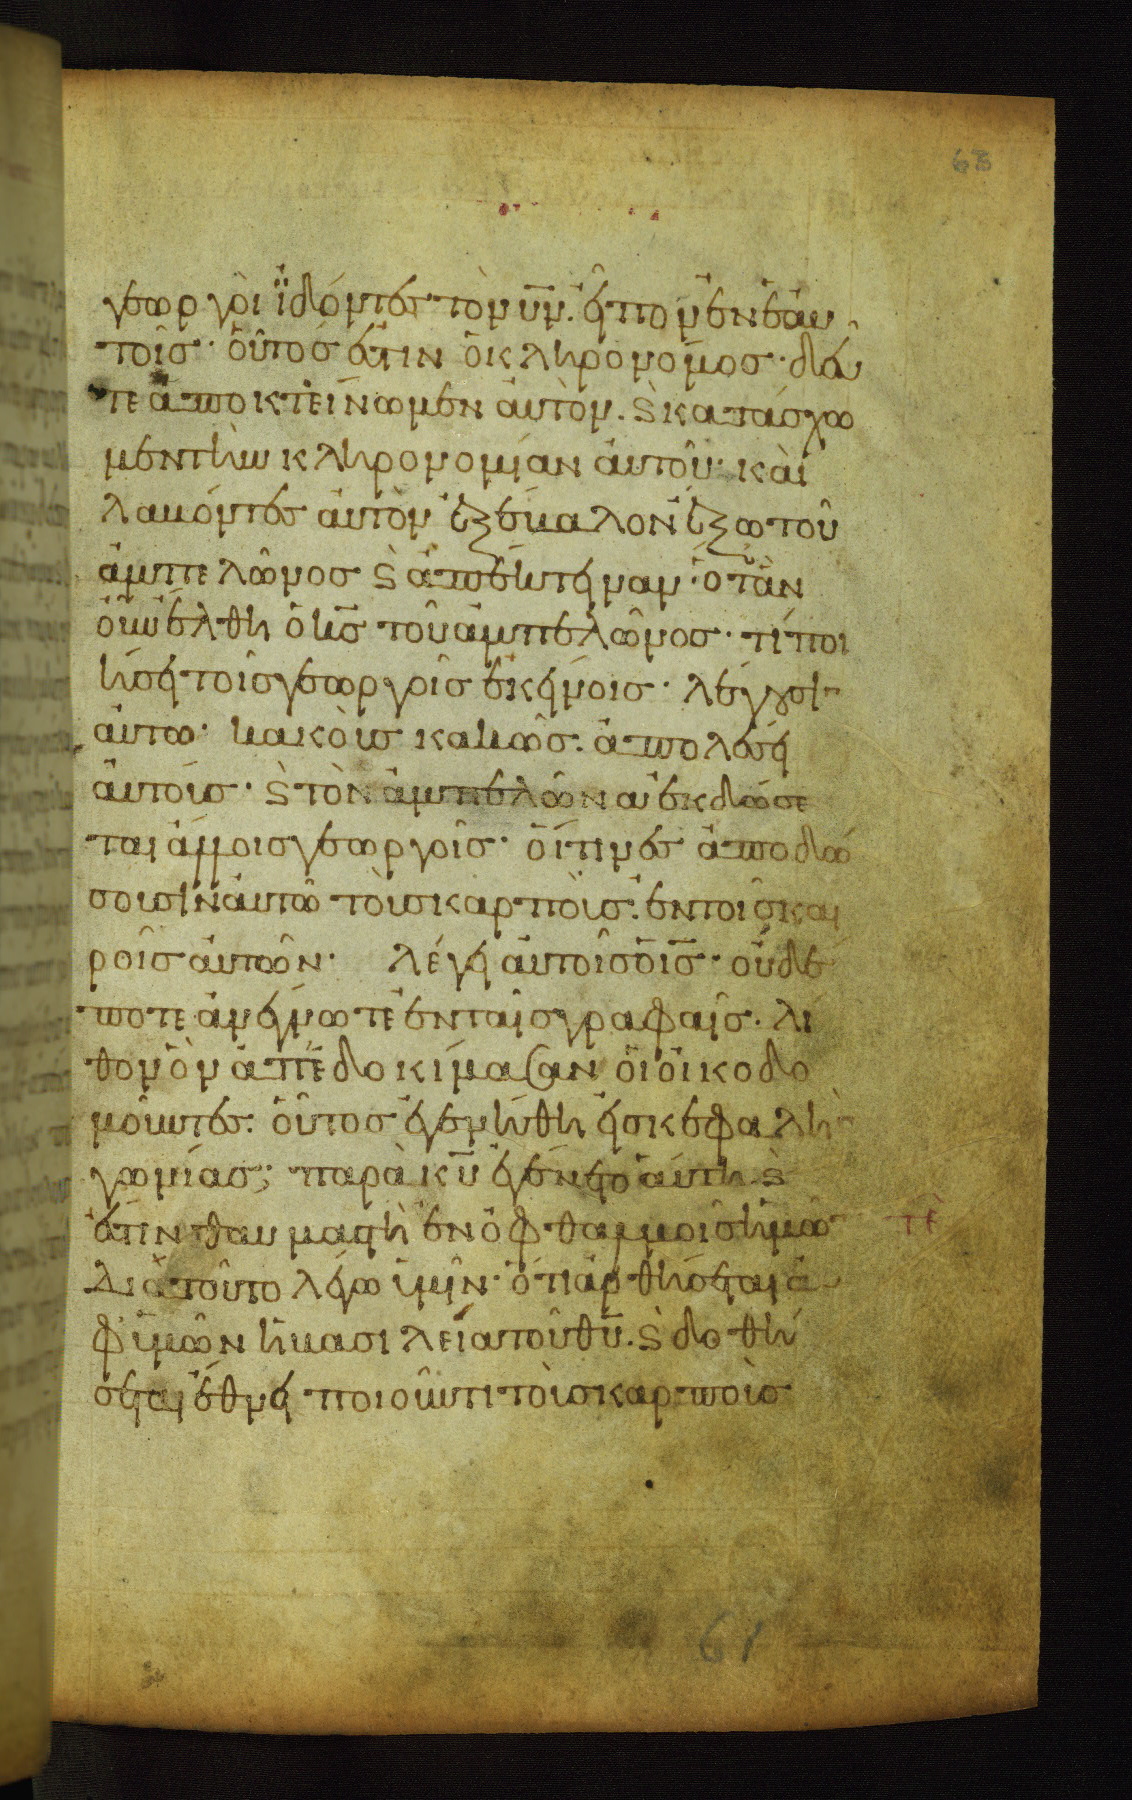 63
γεωργοὶ ἰδόντες τὸν υ̅ν̅. εἶπον ἐν ἑαυ
τοῖς· οὗτός ἐστιν ὁ κληρονόμος· δεύ
τε ἀποκτείνωμεν αὐτὸν. ϗ κατάσχω
μεν τὴν κληρονομίαν αὐτοῦ· καὶ
λαβόντες αὐτὸν ἐξέβαλον ἔξω τοῦ
ἀμπελῶνος ϗ ἀπέκτειναν· ὅταν
οὖν ἔλθη ὁ κ̅ς̅ τοῦ ἀμπελῶνος· τί ποι
ήσει τοῖς γεωργοῖς ἐκείνοις· λέγουσιν
αὐτῶ· κακοὺς κακῶς. ἀπολέσει
αὐτούς· ϗ τὸν ἀμπελῶνα ἐκδώσε
ται ἄλλοις γεωργοῖς· οἵτινες ἀποδώ
σουσιν αὐτῶ τοὺς καρποὺς. ἐν τοῖς και
ροῖς αὐτῶν· λέγει αὐτοῖς ὁ ι̅ς̅· οὐδέ
ποτε ἀνέγνωτε ἐν ταῖς γραφαῖς· λί
θον ὃν ἀπεδοκίμασαν οἱ οἰκοδο
μοῦντες. οὗτος ἐγενήθη εἰς κεφαλὴν
γωνίας; παρὰ κ̅υ̅ ἐγένετο αὕτη ϗ
ἔστιν θαυμαστὴ ἐν ὀφθαλμοῖς ἡμῶν
Διὰ τοῦτο λέγω ὑμῖν· ὅτι ἀρθήσεται ἀ
φ' ὑμῶν ἡ βασιλεία τοῦ θ̅υ̅. ϗ δοθή
σεται ἔθνει ποιοῦντι τοὺς καρποὺς
61